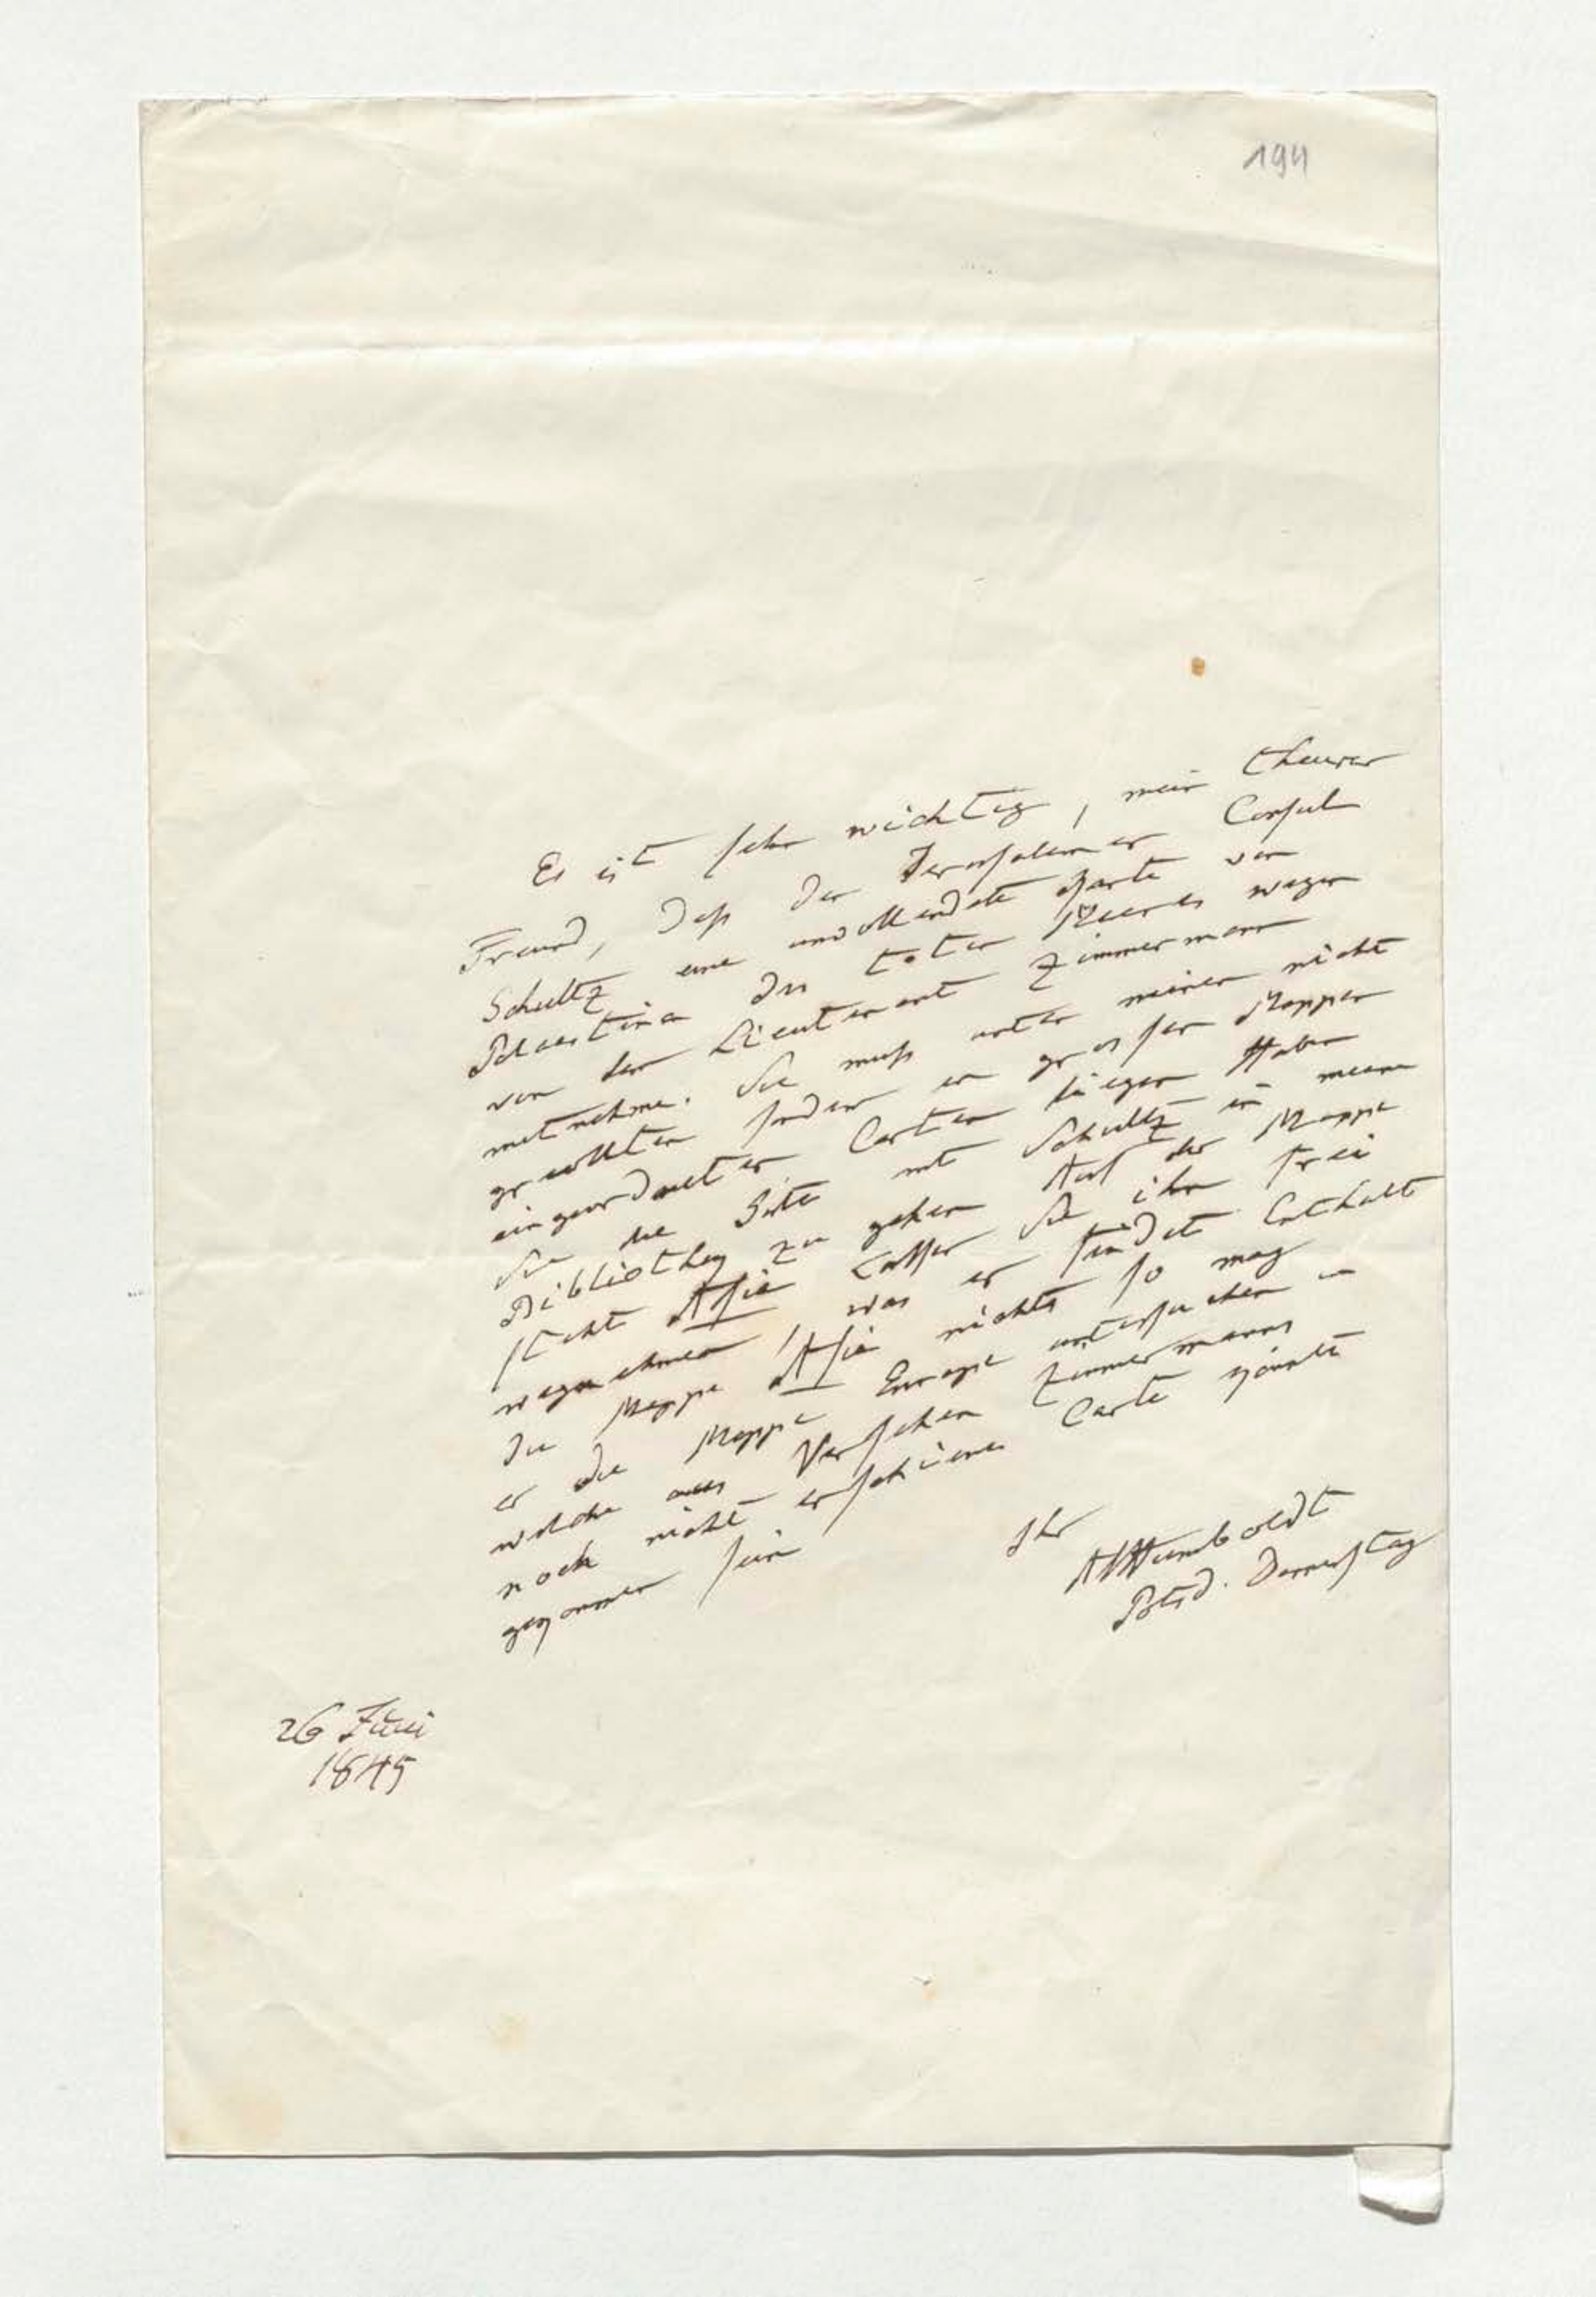 194
Es ist sehr wichtig, mein theurer
Freund, daß der Jerusalemer Consul
Schultz eine unvollendete Karte von
Palaestina des toten Meeres wegen
von dem Lieutenant Zimmermann
mitnehme. Sie muß unter meinen nicht
gerollten sondern in grossen Mappen
eingeordneter Carten liegen Haben
Sie die Güte mit Schultz in meine
Bibliothek zu gehen Auf der Mappe
steht Asien Lassen Sie ihn frei
wegnehmen, was er findet Enthält
die Mappe Asien nichts so mag
er die Mappe Europa untersuchen in
welche aus Versehen Zimmermanns
noch nicht erschienene Carte könnte
gekommen sein
Ihr
AvHumboldt
Potsd. Donnerstag
26 Juni
1845